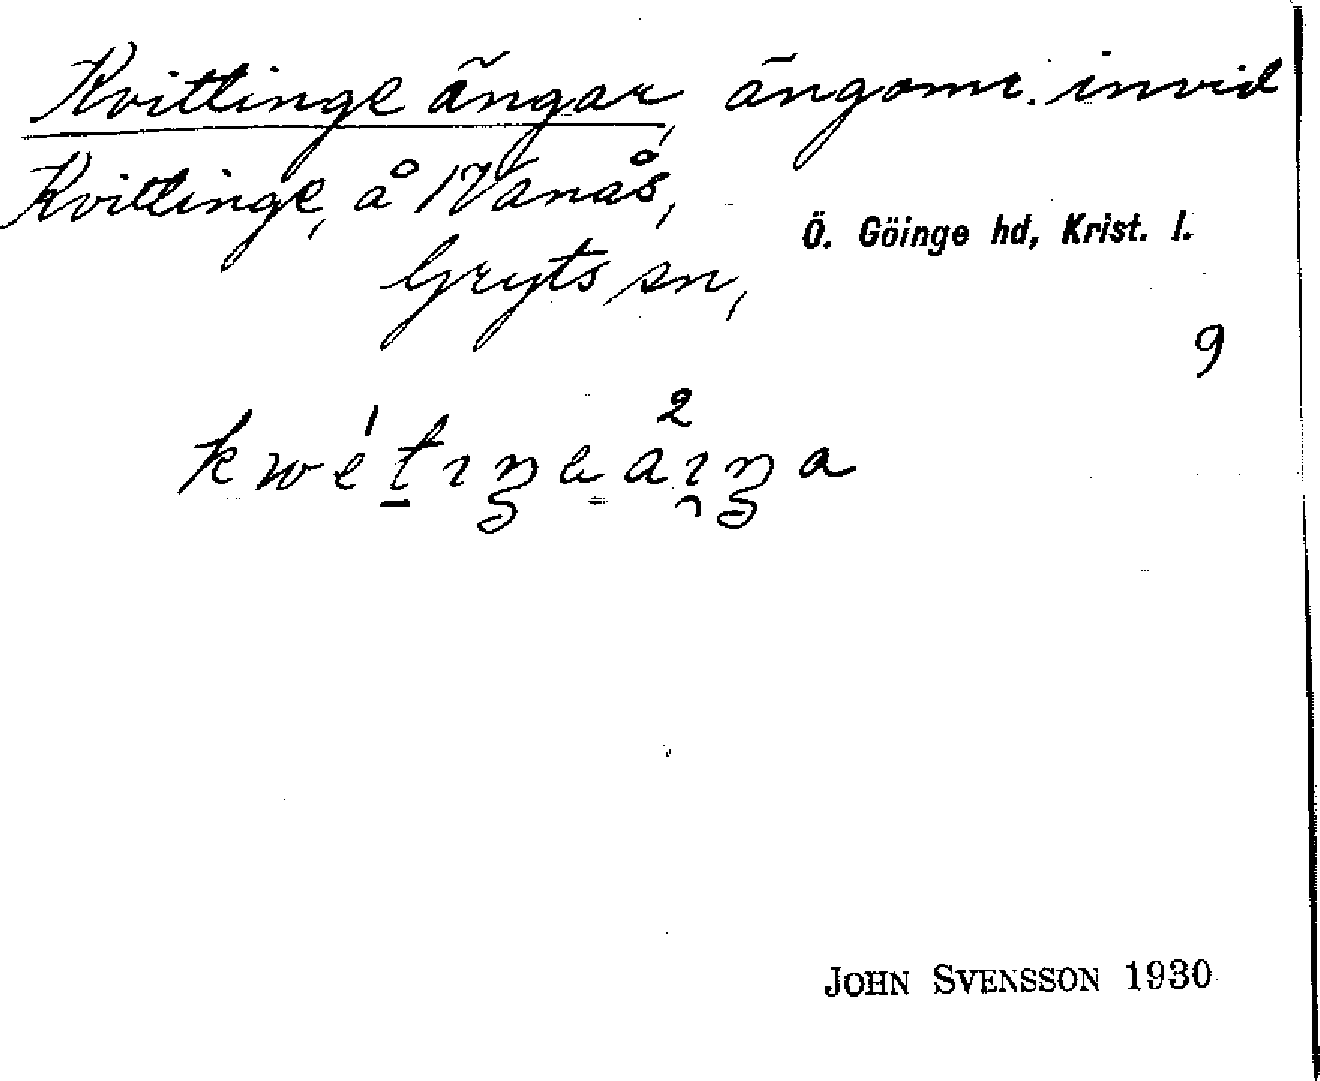 Kvitlinge ängar, ängomr. invid
Kvitlinge, å 1 Vanås,
Ö. Göinge hd, Krist. l.
Gryts sn,
9
JOHN SVENSSON 1930